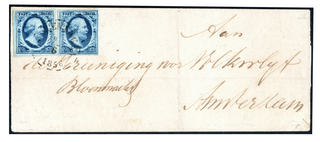 Aan
de Vereeniging voor Volksvlyt
Bloemmarkt
Amsterdam